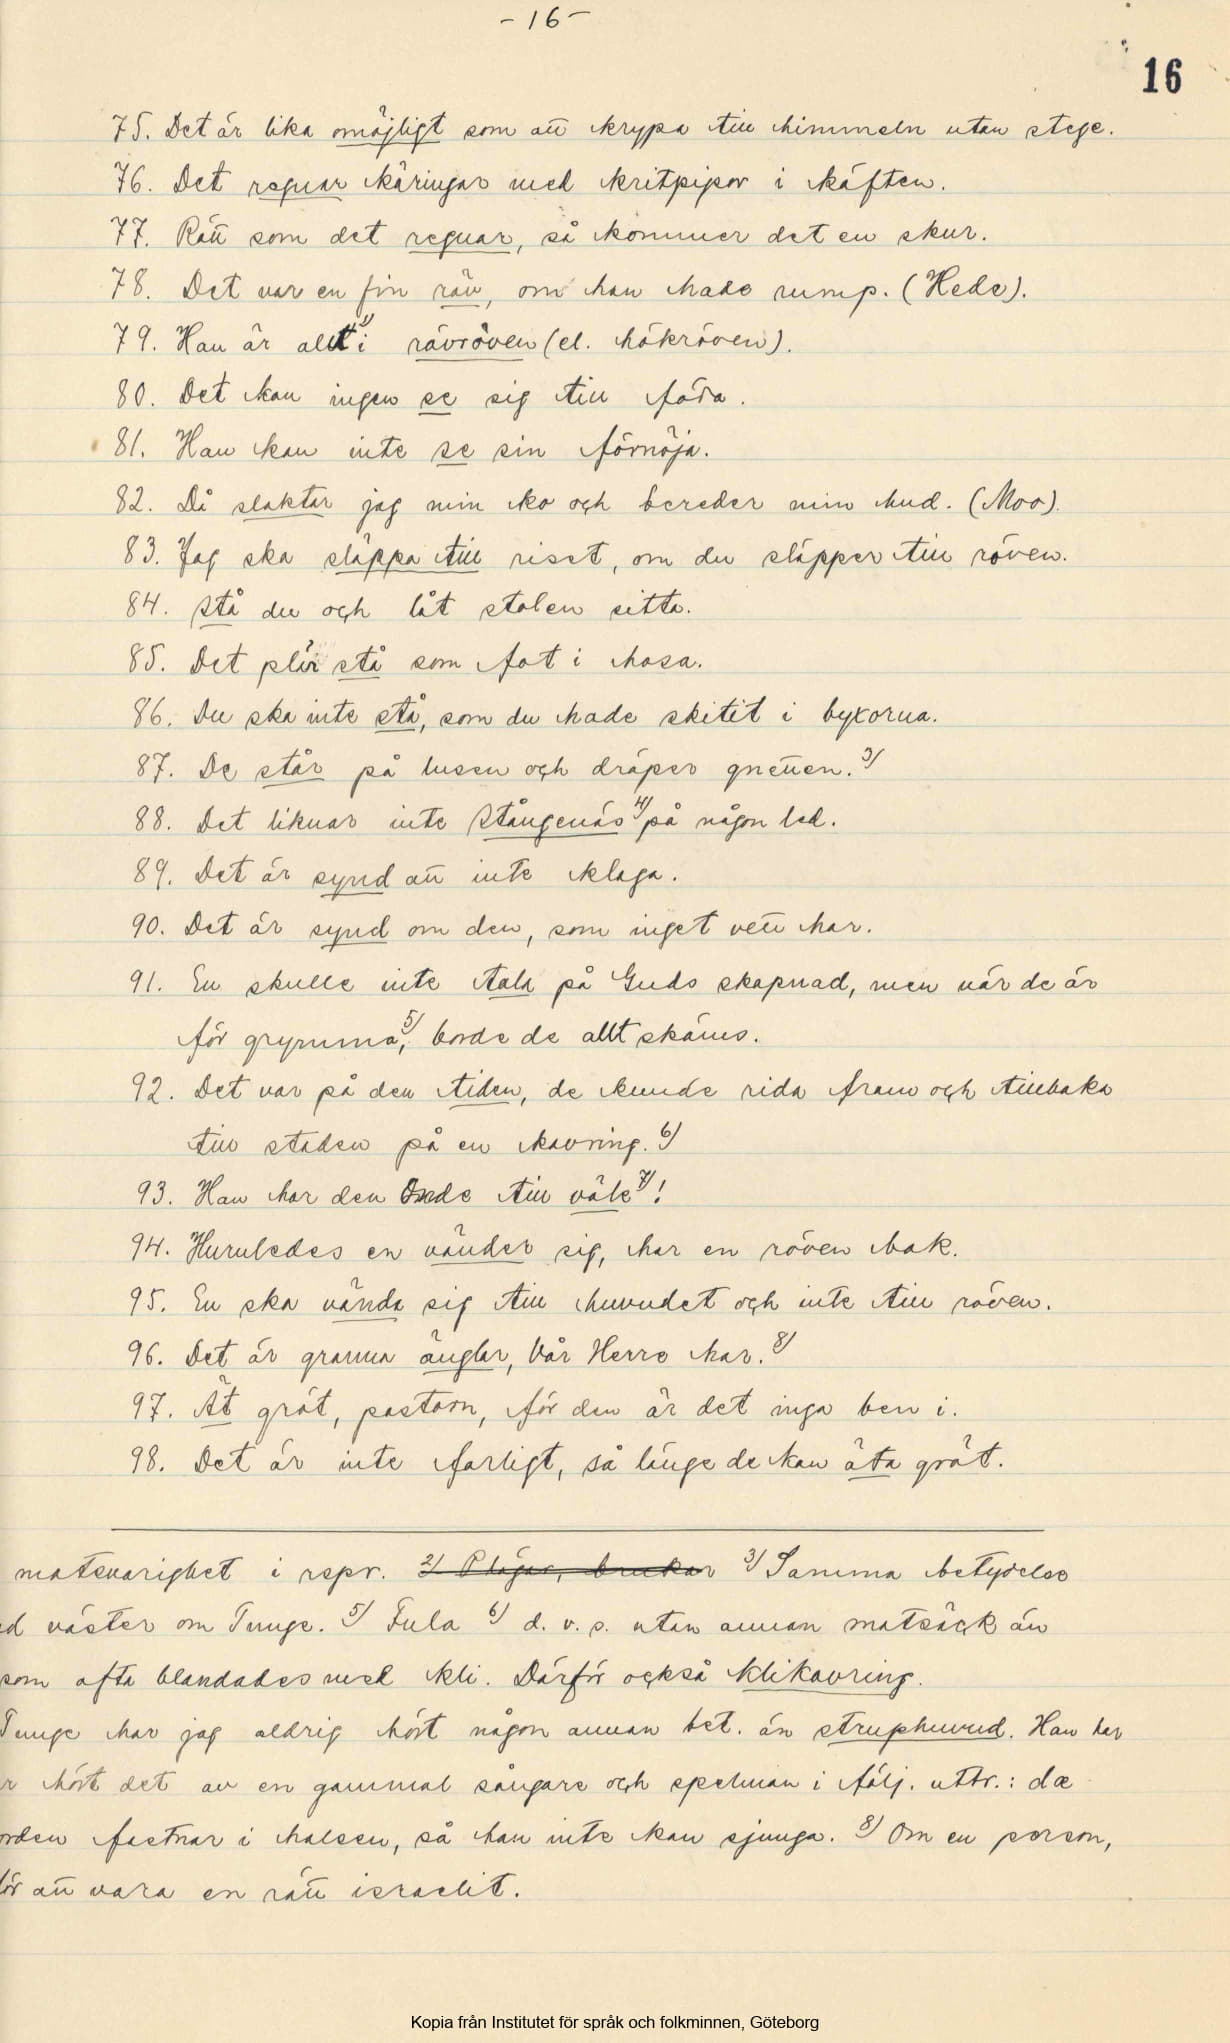 - 16 -
16
75. Det är lika omöjligt som att krypa till himmeln utan stege.
76. Det regnar käringar med kritpipor i käften.
77. Rätt som det regnar, så kommer det en skur.
78. Det var en fin räv, om han hade rump. (Hede).
79. Han är allt i 1) rävröven (el. hökröven).
80. Det kan ingen se sig till föda.
81. Han kan inte se sin förnöja.
82. Då slaktar jag min ko och bereder min hud. (Moo).
83. Jag ska släppa till riset, om du släpper till röven.
84. Stå du och låt stolen sitta.
85. Det plör stå som fot i hosa.
86. Du ska inte stå, som du hade skitit i byxorna.
87. De står på lusen och dräper gnetten. 3)
88. Det liknar inte Stångenäs 4) på någon led.
89. Det är synd att inte klaga.
90. Det är synd om den, som inget vett har.
91. En skulle inte tala på Guds skapnad, men när de är
för grymma 5), borde de allt skäms.
92. Det var på den tiden, de kunde rida fram och tillbaka
till staden på en kavring. 6)
93. Han har den Onde till väle 7)!
94. Huruledes en vänder sig, har en röven bak.
95. En ska vända sig till huvudet och inte till röven.
96. Det är granna änglar, Vår Herre har. 8)
97. Ät gröt, pastorn, för den är det inga ben i.
98. Det är inte farligt, så länge de kan äta gröt.
matsvarighet i repr. 2) Plägar, brukar 3) Samma betydelse
väster om Tunge. 5) Fula 6) d. v. s. utan annan matsäck än
som ofta blandades med kli. Därför också klikavring.
Tunge har jag aldrig hört någon annan bet. än struphuvud. Han har
hört det av en gammal sångare och spelman i följ. uttr.: dæ
orden fastnar i halsen, så han inte kan sjunga. 8) Om en person,
för att vara en rätt israelit.
Kopia från Institutet för språk och folkminnen, Göteborg